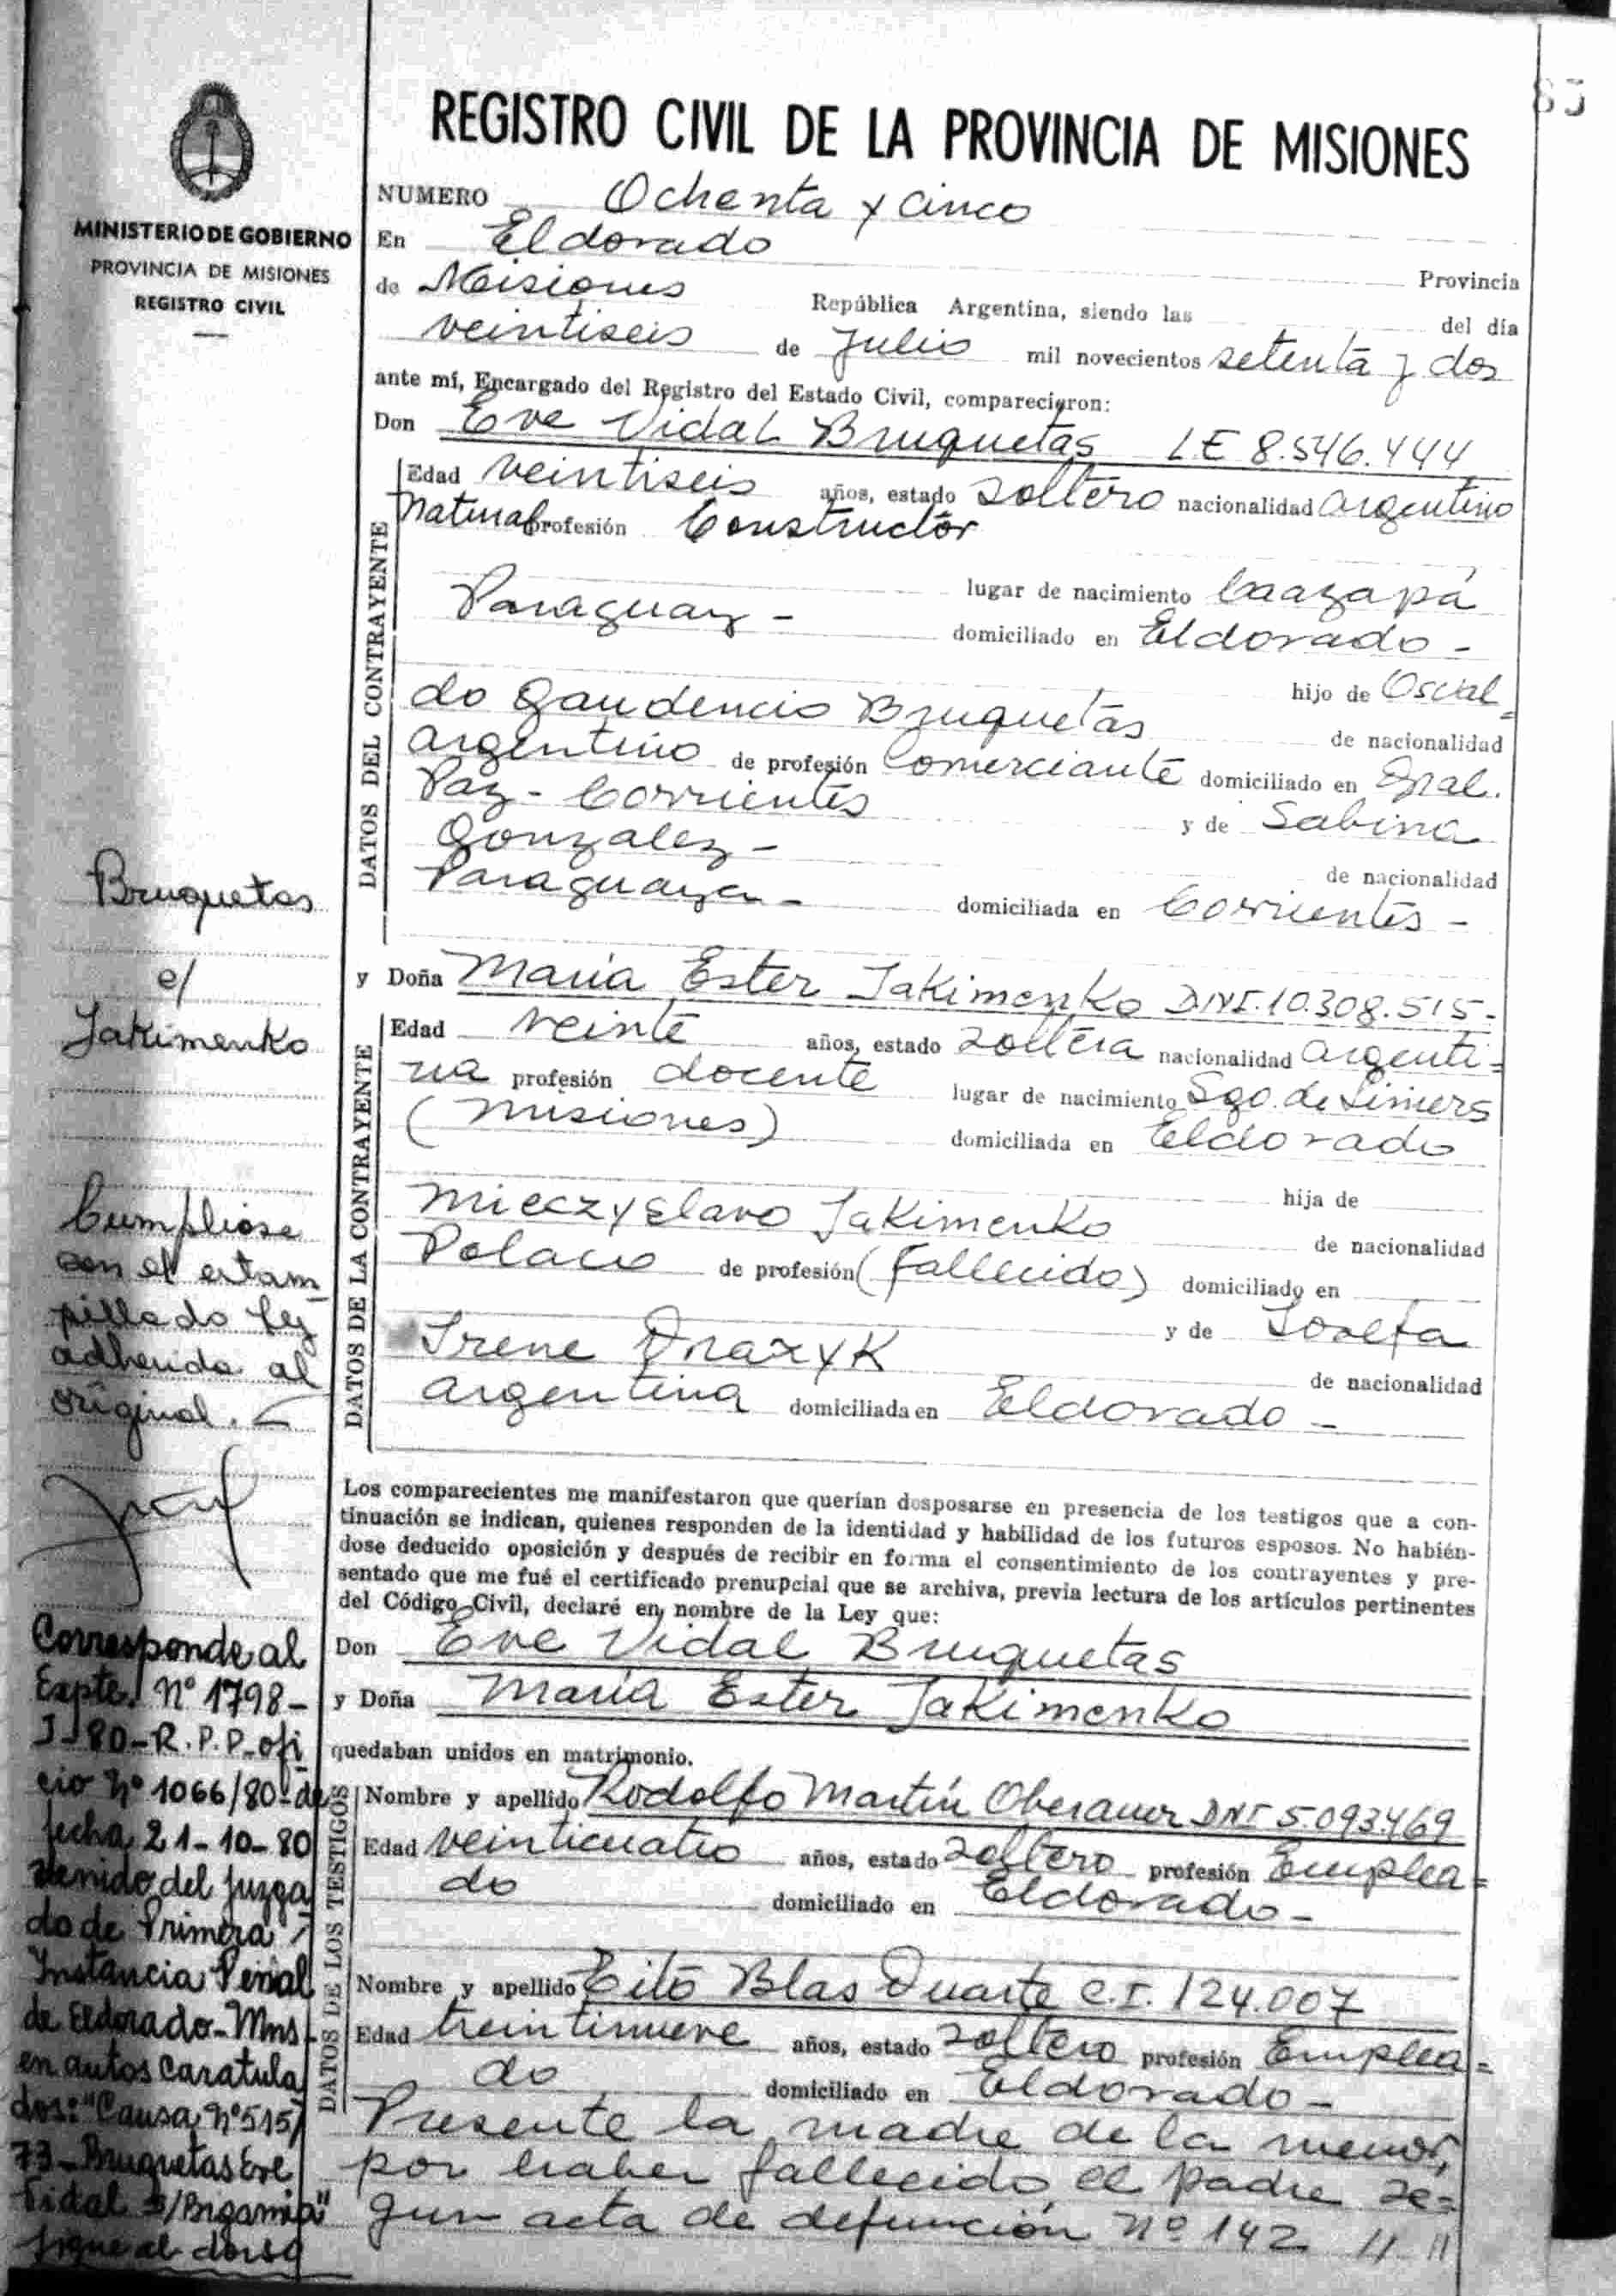 85
REGISTRO CIVIL DE LA PROVINCIA DE MISIONES
MINISTERIO DE GOBIERNO
PROVINCIA DE MISIONES
REGISTRO CIVIL
NUMERO Ochenta y Cinco
En Eldorado Provincia
de Misiones República Argentina, siendo las del día
veintiseis de Julio mil novecientos setenta y dos
ante mí, Encargado del Registro del Estado Civil, comparecieron:
Don Eve Vidal Bruquetas LE 8.546.444
DATOS DEL CONTRAYENTE
Edad veintiseis años, estado soltero nacionalidad argentino
Natural profesión Constructor
lugar de nacimiento Caazapá
Paraguay - domiciliado en Eldorado -
hijo de Osval=
do Gaudencio Bruquetas de nacionalidad
argentino de profesión Comerciante domiciliado en Gral.
Paz - Corrientes y de Sabina
Gonzalez - de nacionalidad
Paraguaya - domiciliada en Corrientes -
y Doña Maria Ester Jakimenko DNI.10.308.515-
DATOS DE LA CONTRAYENTE
Edad veinte años, estado soltera nacionalidad argenti=
na profesión docente lugar de nacimiento Sgo. de Liniers
(Misiones) domiciliada en Eldorado
hija de
Mieczyslavo Jakimenko de nacionalidad
Polaco de profesión (fallecido) domiciliado en
y de Josefa
Irene Drazyk de nacionalidad
argentina domiciliada en Eldorado -
Los comparecientes me manifestaron que querían desposarse en presencia de los testigos que a con-
tinuación se indican, quienes responden de la identidad y habilidad de los futuros esposos. No habién-
dose deducido oposición y después de recibir en forma el consentimiento de los contrayentes y pre-
sentado que me fué el certificado prenupcial que se archiva, previa lectura de los artículos pertinentes
del Código Civil, declaré en nombre de la Ley que:
Don Eve Vidal Bruquetas
y Doña Maria Ester Jakimenko
quedaban unidos en matrimonio.
DATOS DE LOS TESTIGOS
Nombre y apellido Rodolfo Martín Oberauer DNI 5.093.469
Edad veinticuatro años, estado soltero profesión Emplea=
do domiciliado en Eldorado -
Nombre y apellido Tito Blas Duarte C.I. 124.007
Edad treintinueve años, estado soltero profesión Emplea=
do domiciliado en Eldorado -
Presente la madre de la menor,
por haber fallecido el padre se=
gun acta de defunción Nº 142 // //
Bruquetas
c/
Jakimenko
Cumpliose
con el estam
pillado ley
adherido al
original.
Corresponde al
Expte. Nº 1798-
J-80-R.P.P. ofi
cio Nº 1066/80-de
fecha 21-10-80
venido del Juzga
do de Primera
Instancia Penal
de Eldorado-Mns
en autos caratula
dos: "Causa Nº 515/
73-Bruquetas Eve
Vidal s/Bigamia"
sigue al dorso